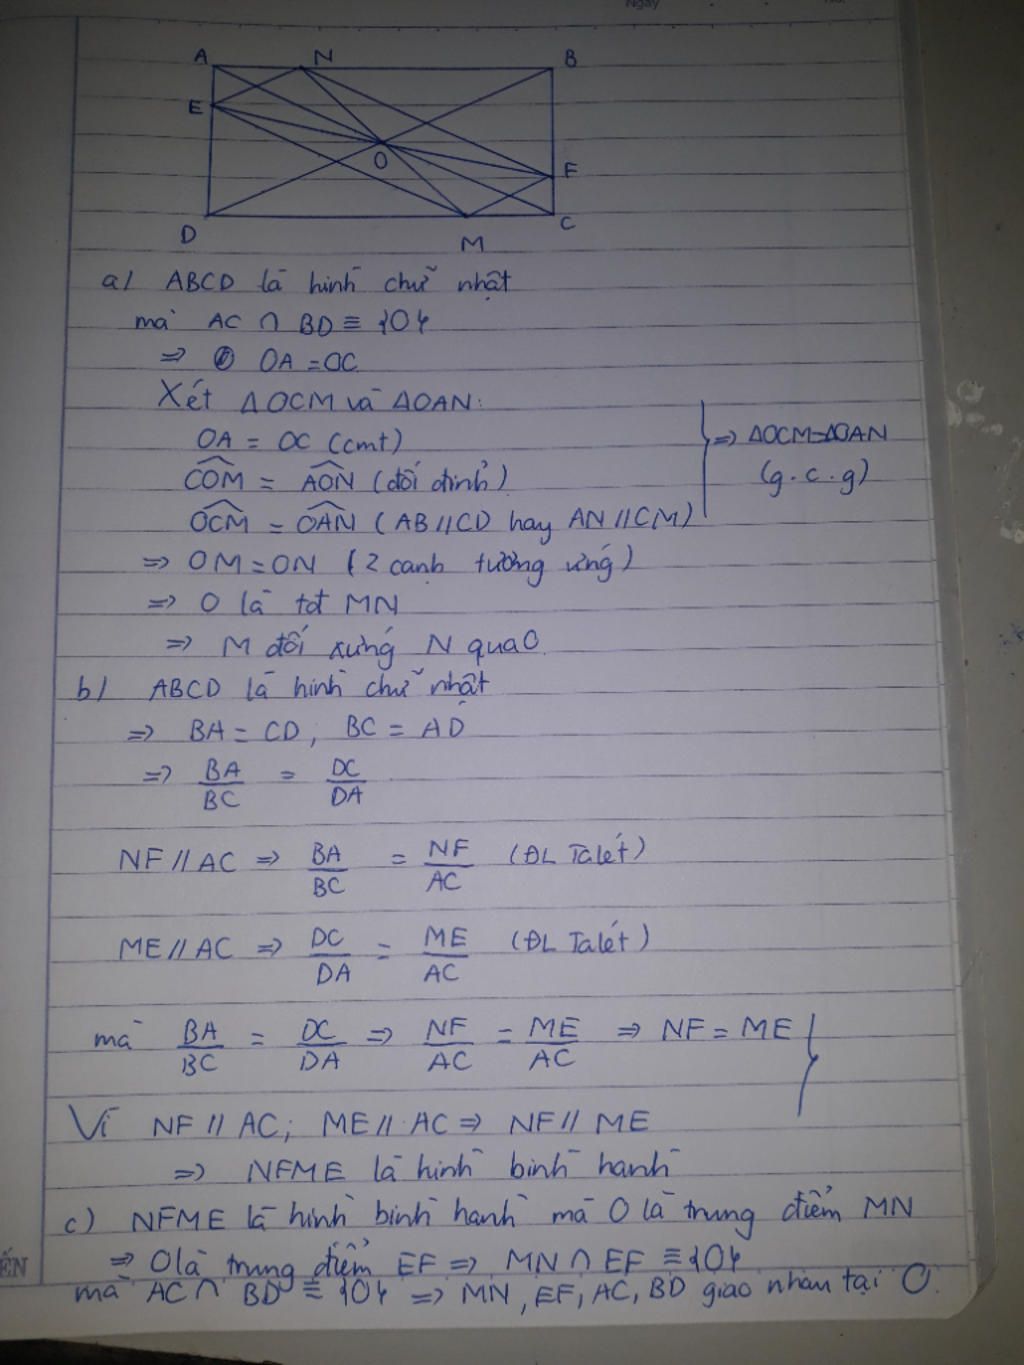 Ngày
A N B
E
O
F
D M C
a) ABCD là hình chữ nhật
mà AC ∩ BD ≡ {O}
⇒ OA = OC
Xét ΔOCM và ΔOAN:
OA = OC (cmt)
⇒ ΔOCM = ΔOAN
\widehat{COM} = \widehat{AON} (đối đỉnh)
(g.c.g)
\widehat{OCM} = \widehat{OAN} (AB // CD hay AN // CM)
⇒ OM = ON (2 cạnh tương ứng)
⇒ O là tđ MN
⇒ M đối xứng N qua O
b) ABCD là hình chữ nhật
⇒ BA = CD, BC = AD
⇒ BA/BC = DC/DA
NF // AC ⇒ BA/BC = NF/AC (ĐL Talét)
ME // AC ⇒ DC/DA = ME/AC (ĐL Talét)
mà BA/BC = DC/DA ⇒ NF/AC = ME/AC ⇒ NF = ME
Vì NF // AC; ME // AC ⇒ NF // ME
⇒ NFME là hình bình hành
c) NFME là hình bình hành mà O là trung điểm MN
⇒ O là trung điểm EF ⇒ MN ∩ EF ≡ {O}
mà AC ∩ BD ≡ {O} ⇒ MN, EF, AC, BD giao nhau tại O.
ẾN